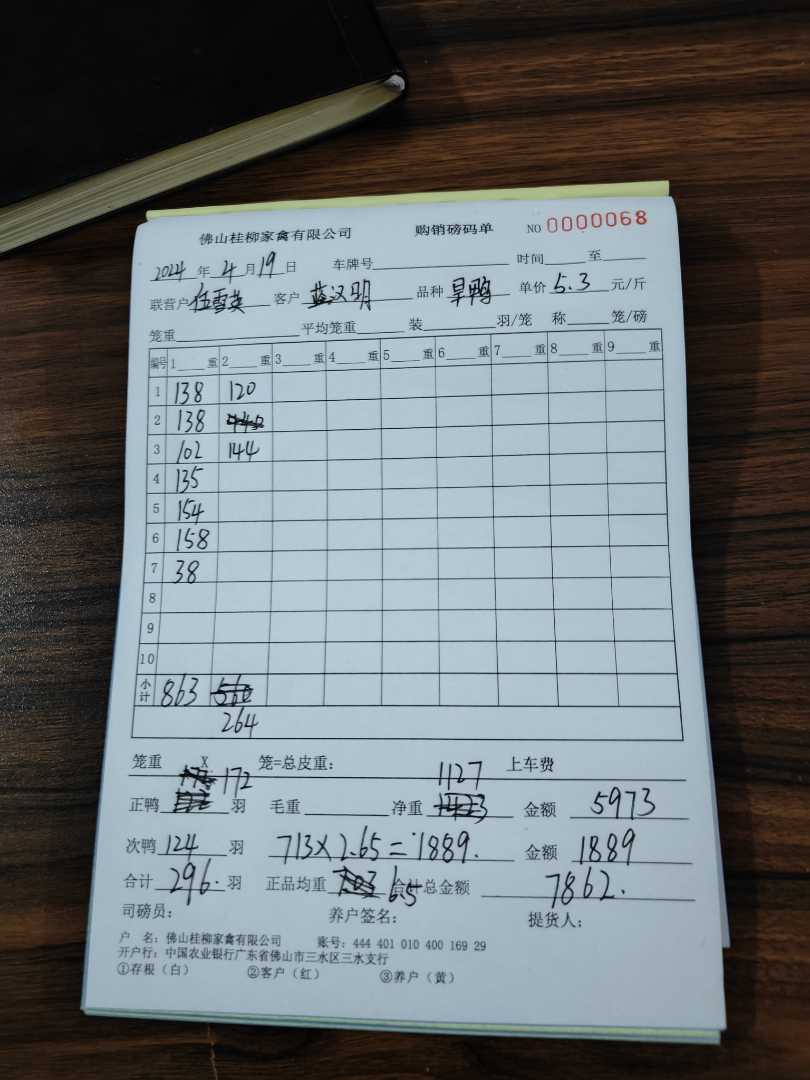 佛山桂柳家禽有限公司 购销磅码单 NO 0000068
2024 年 4 月 19 日 车牌号 时间 至
联营户 伍雪英 客户 蓝汉明 品种 旱鸭 单价 5.3 元/斤
笼重 平均笼重 装 羽/笼 称 笼/磅
编号 1 重 2 重 3 重 4 重 5 重 6 重 7 重 8 重 9 重
1 138 120
2 138
3 102 144
4 135
5 154
6 158
7 38
8
9
10
小计 863
264
笼重 X 笼=总皮重: 上车费
正鸭 172 羽 毛重 净重 1127 金额 5973
次鸭 124 羽 713×2.65=1889. 金额 1889
合计 296. 羽 正品均重 6.5 合计总金额 7862.
司磅员: 养户签名: 提货人:
户 名: 佛山桂柳家禽有限公司 账号: 444 401 010 400 169 29
开户行: 中国农业银行广东省佛山市三水区三水支行
①存根(白) ②客户(红) ③养户(黄)